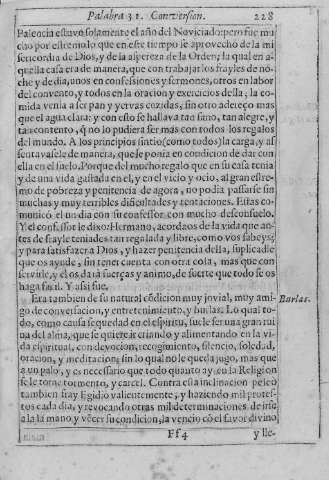 Palabra 31. Conversion. 228
Palencia estuvo solamente el año del Noviciado: pero fue mu
cho por estremo lo que en este tiempo se aprovechò de la mi
sericordia de Dios, y de la aspereza de la Orden; la qual en a-
quella casa era de manera, que con trabajar los frayles de nó-
che y de dia, unos en confessiones y sermones, otros en labor
del convento, y todos en la oracion y exercicios della, la co-
mida venia a ser pan y yervas cozidas, sin otro adereço mas
que el agua clara: y con esto se hallava tan sano, tan alegre, y
tan contento, q̃ no lo pudiera ser mas con todos los regalos
del mundo. A los principios sintio (como todos) la carga, y as
sentavasele de manera, que le ponia en condicion de dar con
ella en el suelo. Porque del mucho regalo que en su casa tenia
y de una vida gastada en el, y en el vicio y ocio, al gran estre-
mo de pobreza y penitencia de agora, no podia passarse sin
muchas y muy terribles dificultades y tentaciones. Estas co-
municò el un dia con su confessor con mucho desconsuelo.
Y el confessor le dixo: Hermano, acordaos de la vida que an-
tes de frayle teniades tan regalada y libre, como vos sabeys;
y para satisfazer a Dios, y hazer penitencia della, suplicadle
que os ayude, sin tener cuenta con otra cosa, mas que con
servirle, y el os darà fuerças y animo, de suerte que todo se os
haga facil. Y assi fue.
Era tambien de su natural cõdicion muy jovial, muy ami- Burlas.
go de conversacion, y entretenimiento, y burlas. Lo qual to-
do, como causa sequedad en el espiritu, suele ser una gran rui
na del alma, que se quiere ir criando y alimentando en la vi-
da espiritual, con devocion, recogimiento, silencio, soledad,
oracion, y meditacion; sin lo qual no le queda jugo, mas que
a un palo, y es necessario que todo quanto ay en la Religion
se le torne tormento, y carcel. Contra esta inclinacion peleò
tambien fray Egidio valientemente, y haziendo mil protes-
tos cada dia, y revocando otras mil determinaciones de irse
a la mano y vẽcer su condicion, la venciò cõ el favor divino
Ff 4 y lle-